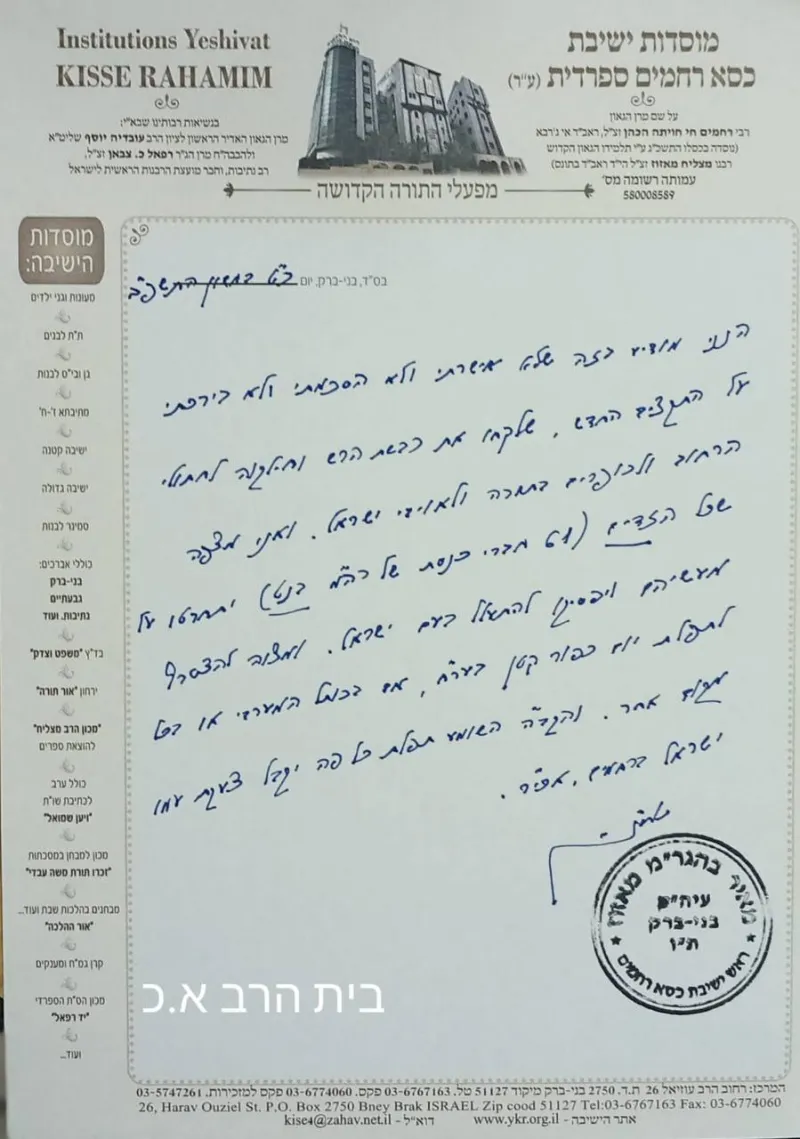 Institutions Yeshivat
KISSE RAHAMIM
בנשיאות רבותינו שבא"י:
מרן הגאון האדיר הראשון לציון הרב עובדיה יוסף שליט"א
ולהבבח"ח מרן הג"ר רפאל כ. צבאן זצ"ל,
רב נתיבות, וחבר מועצת הרבנות הראשית לישראל
מוסדות ישיבת
כסא רחמים ספרדית (ע"ר)
על שם מרן הגאון
רבי רחמים חי חויתה הכהן זצ"ל, ראב"ד אי ג'רבא
(נוסדה בכסלו התשכ"ג ע"י תלמידו הגאון הקדוש
רבנו מצליח מאזוז זצ"ל הי"ד ראב"ד בתונס)
עמותה רשומה מס'
580008589
מפעלי התורה הקדושה
מוסדות
הישיבה:
מעונות וגני ילדים
ת"ת לבנים
גן ובי"ס לבנות
מתיבתא ז'-ח'
ישיבה קטנה
ישיבה גדולה
סמינר לבנות
כוללי אברכים:
בני-ברק
גבעתיים
נתיבות. ועוד
בד"ץ "משפט וצדק"
ירחון "אור תורה"
"מכון הרב מצליח"
להוצאת ספרים
כולל ערב
לכתיבת שו"ת
"ויען שמואל"
מכון למבחן במסכתות
"זכרו תורת משה עבדי"
מבחנים בהלכות שבת ועוד...
"אור ההלכה"
קרן גמ"ח ומענקים
מכון הס"ת הספרדי
"יד רפאל"
ועוד...
בס"ד, בני-ברק, יום כ"ט בחשון התשפ"ב
הנני מודיע בזה שלא אישרתי ולא הסכמתי ולא בירכתי
על התקציב החדש, שלקחו את כבשת הרש וחילקוה לחתולי
הרחוב ולכופרים בתורה ולאויבי ישראל. ואני מצפה
שכל הזדים (61 חברי כנסת של רה"מ בנט) יתחרטו על
מעשיהם ויפסיקו להתעלל בעם ישראל. ומצוה להצטרף
לתפלת יום כפור קטן בער"ח, אם בכותל המערבי או בכל
מקום אחר. והקב"ה השומע תפלת כל פה יקבל צעקת עמו
ישראל ברחמים, אכי"ר.
מאיר בהגר"מ מאזוז
עיה"ק
בני-ברק
ת"ו
ראש ישיבת כסא רחמים
בית הרב א.כ
המרכז: רחוב הרב עוזיאל 26 ת.ד. 2750 בני-ברק מיקוד 51127 טל. 03-6767163 פקס. 03-6774060 פקס למזכירות. 03-5747261
26, Harav Ouziel St. P.O. Box 2750 Bney Brak ISRAEL Zip cood 51127 Tel:03-6767163 Fax: 03-6774060
אתר הישיבה - www.ykr.org.il דוא"ל - kise4@zahav.net.il